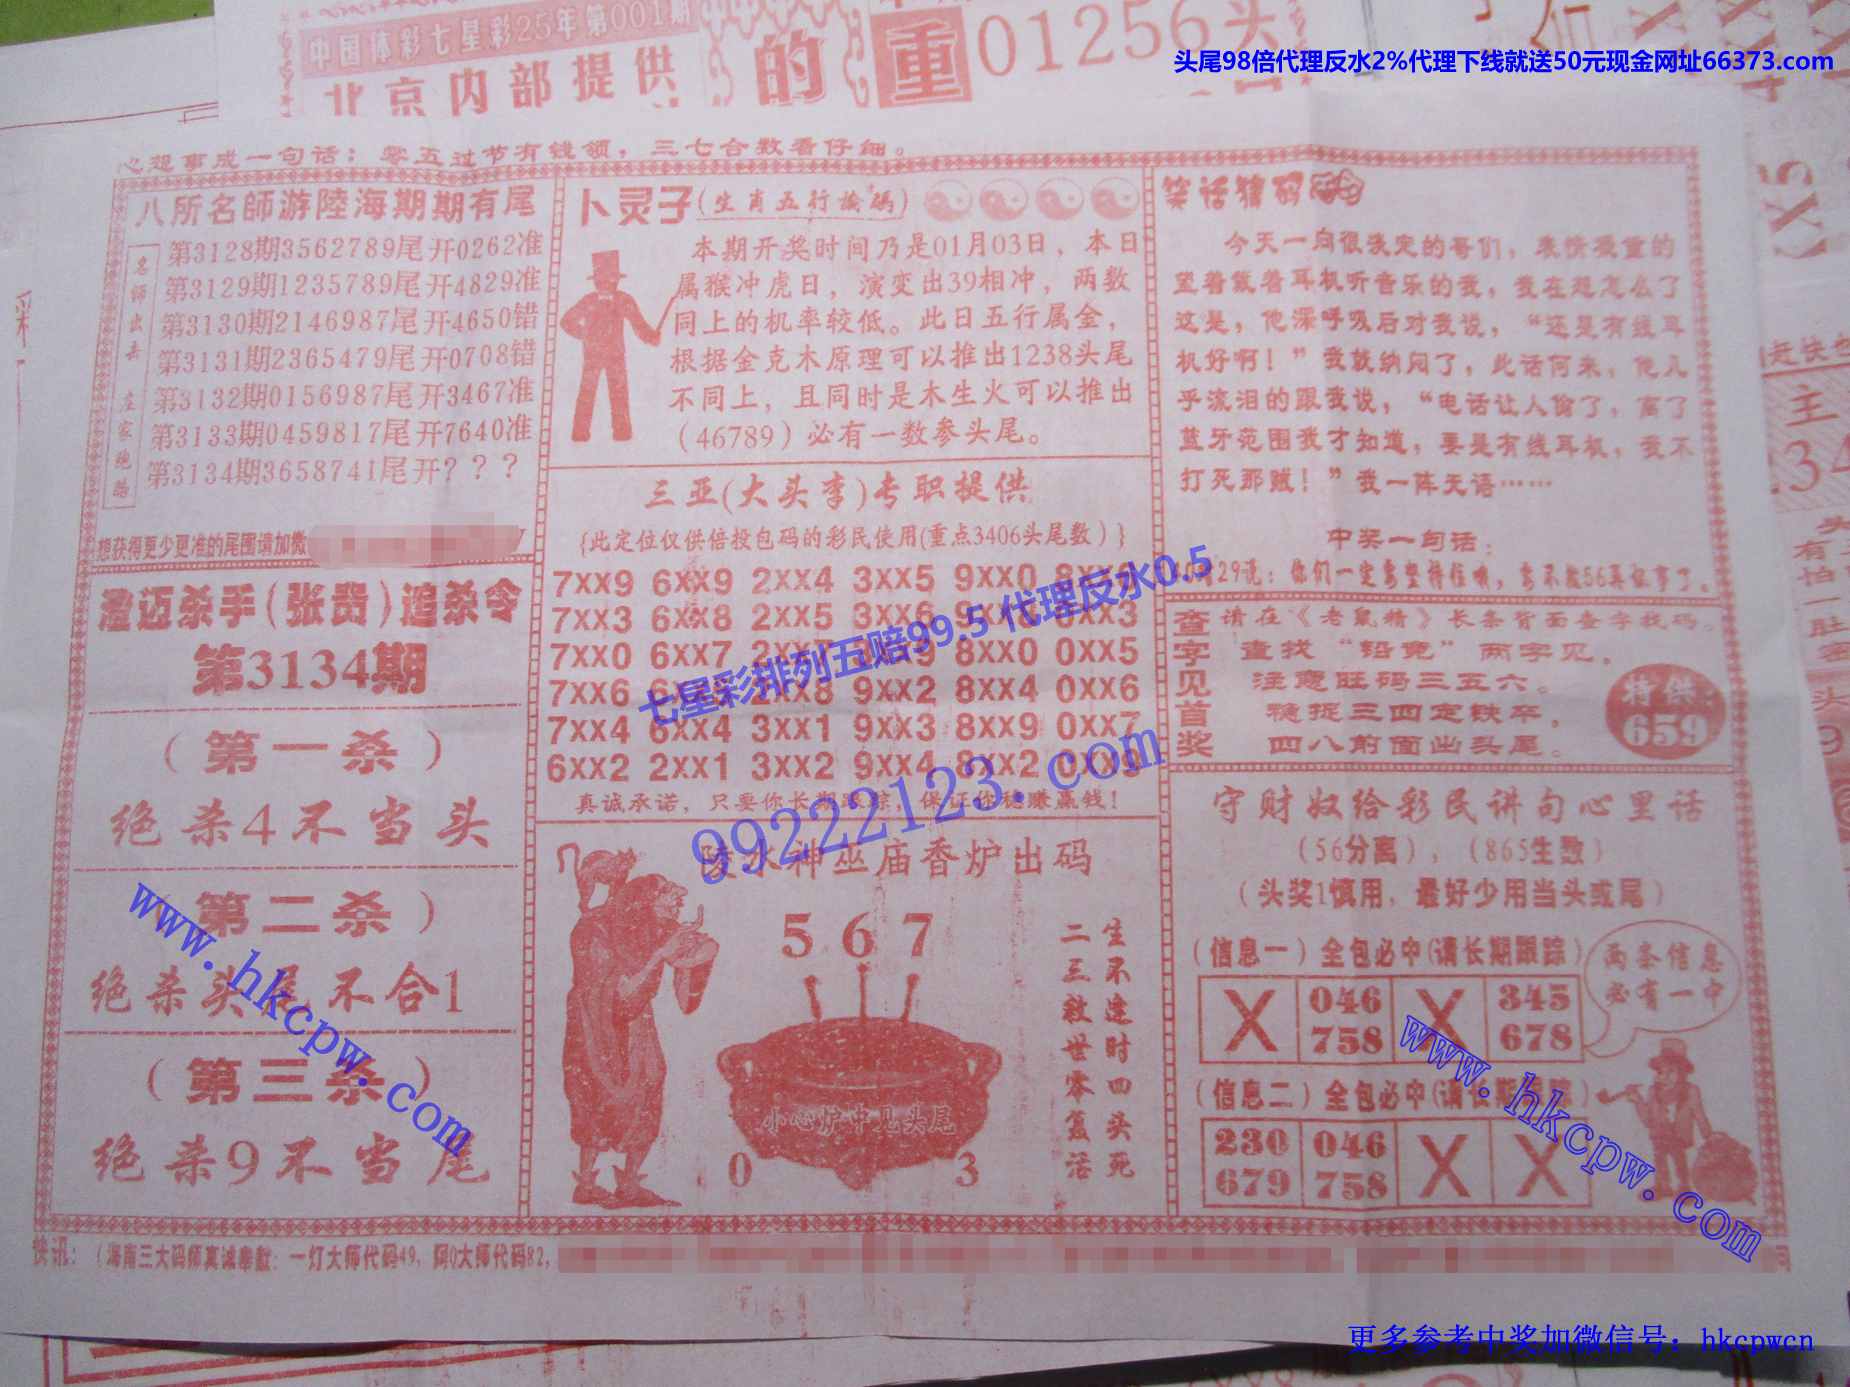 中国体彩七星彩25年第001期
北京内部提供
的
重
01256头
头尾98倍代理反水2%代理下线就送50元现金网址66373.com
心想事成一句话：零五过节有钱领，三七合数看仔细。
八所名師游陸海期期有尾
名師出击 庄家跑路
第3128期3562789尾开0262准
第3129期1235789尾开4829准
第3130期2146987尾开4650错
第3131期2365479尾开0708错
第3132期0156987尾开3467准
第3133期0459817尾开7640准
第3134期3658741尾开？？？
想获得更少更准的尾图请加微
澄迈杀手(张贵)追杀令
第3134期
（第一杀）
绝杀4不当头
（第二杀）
绝杀头尾不合1
（第三杀）
绝杀9不当尾
卜灵子(生肖五行論碼)
本期开奖时间乃是01月03日，本日
属猴冲虎日，演变出39相冲，两数
同上的机率较低。此日五行属金，
根据金克木原理可以推出1238头尾
不同上，且同时是木生火可以推出
（46789）必有一数参头尾。
三亚(大头李)专职提供
{此定位仅供倍投包码的彩民使用(重点3406头尾数)}
7XX9 6XX9 2XX4 3XX5 9XX0
7XX3 6XX8 2XX5 3XX6
7XX0 6XX7 8XX0 0XX5
7XX6 9XX2 8XX4 0XX6
7XX4 6XX4 3XX1 9XX3 8XX9 0XX7
6XX2 2XX1 3XX2 9XX4 8XX2
真诚承诺，只要你长期跟踪，保证你稳赚赢钱！
七星彩排列五赔99.5 代理反水0.5
99222123.com
陵水神巫庙香炉出码
567
小心炉中见头尾
0 3
生不逢时四头死
二三救世零复活
笑话猜码
今天一向很淡定的哥们，表情凝重的
望着戴着耳机听音乐的我，我在想怎么了
这是，他深呼吸后对我说，“还是有线耳
机好啊！”我就纳闷了，此话何来，他几
乎流泪的跟我说，“电话让人偷了，离了
蓝牙范围我才知道，要是有线耳机，我不
打死那贼！”我一阵无语……
中奖一句话：
29说：你们一定要坚持住哦，
查字见首奖
请在《老鼠精》长条背面查字找码。
查找“铅宽”两字见，
注意旺码三五六。
稳捉三四定铁卒，
四八前面出头尾。
特供：
659
守财奴给彩民讲句心里话
（56分离），（865生数）
（头奖1慎用，最好少用当头或尾）
（信息一）全包必中(请长期跟踪)
X 046 X 345
758 678
两条信息
必有一中
（信息二）全包必中(请长期跟踪)
230 046 X X
679 758
www.hkcpw.com
www.hkcpw.com
快讯：（海南三大码师真诚奉献：一灯大师代码49，阿Q大师代码82，
更多参考中奖加微信号：hkcpwcn